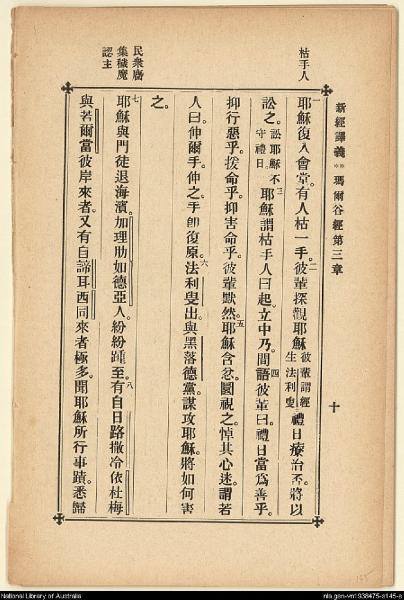 新經譯義**瑪爾谷經第三章
十
枯手人
一耶穌復入會堂。有人枯一手。二彼輩探觀耶穌彼輩謂經生法利叟禮日療治否。將以
訟之。訟耶穌不守禮日。三耶穌謂枯手人曰。起。立中乃。四間語彼輩曰。禮日當為善乎。
抑行惡乎。拨命乎。抑害命乎。彼輩默然。五耶穌含忿圜視之。悼其心迷。謂若
人曰。伸爾手。伸之。手卽復原。六法利叟出。與黑落德黨。謀攻耶穌。將如何害
之。
民衆廣
集穢魔
認主
七耶穌與門徒退海濱。加理肋如德亞人。紛紛踵至。八有自日路撒冷依杜梅
與若爾當彼岸來者。又有自諦耳西同來者極多。聞耶穌所行事蹟。悉歸
National Library of Australia
nla.gen-vn1938475-s145-e